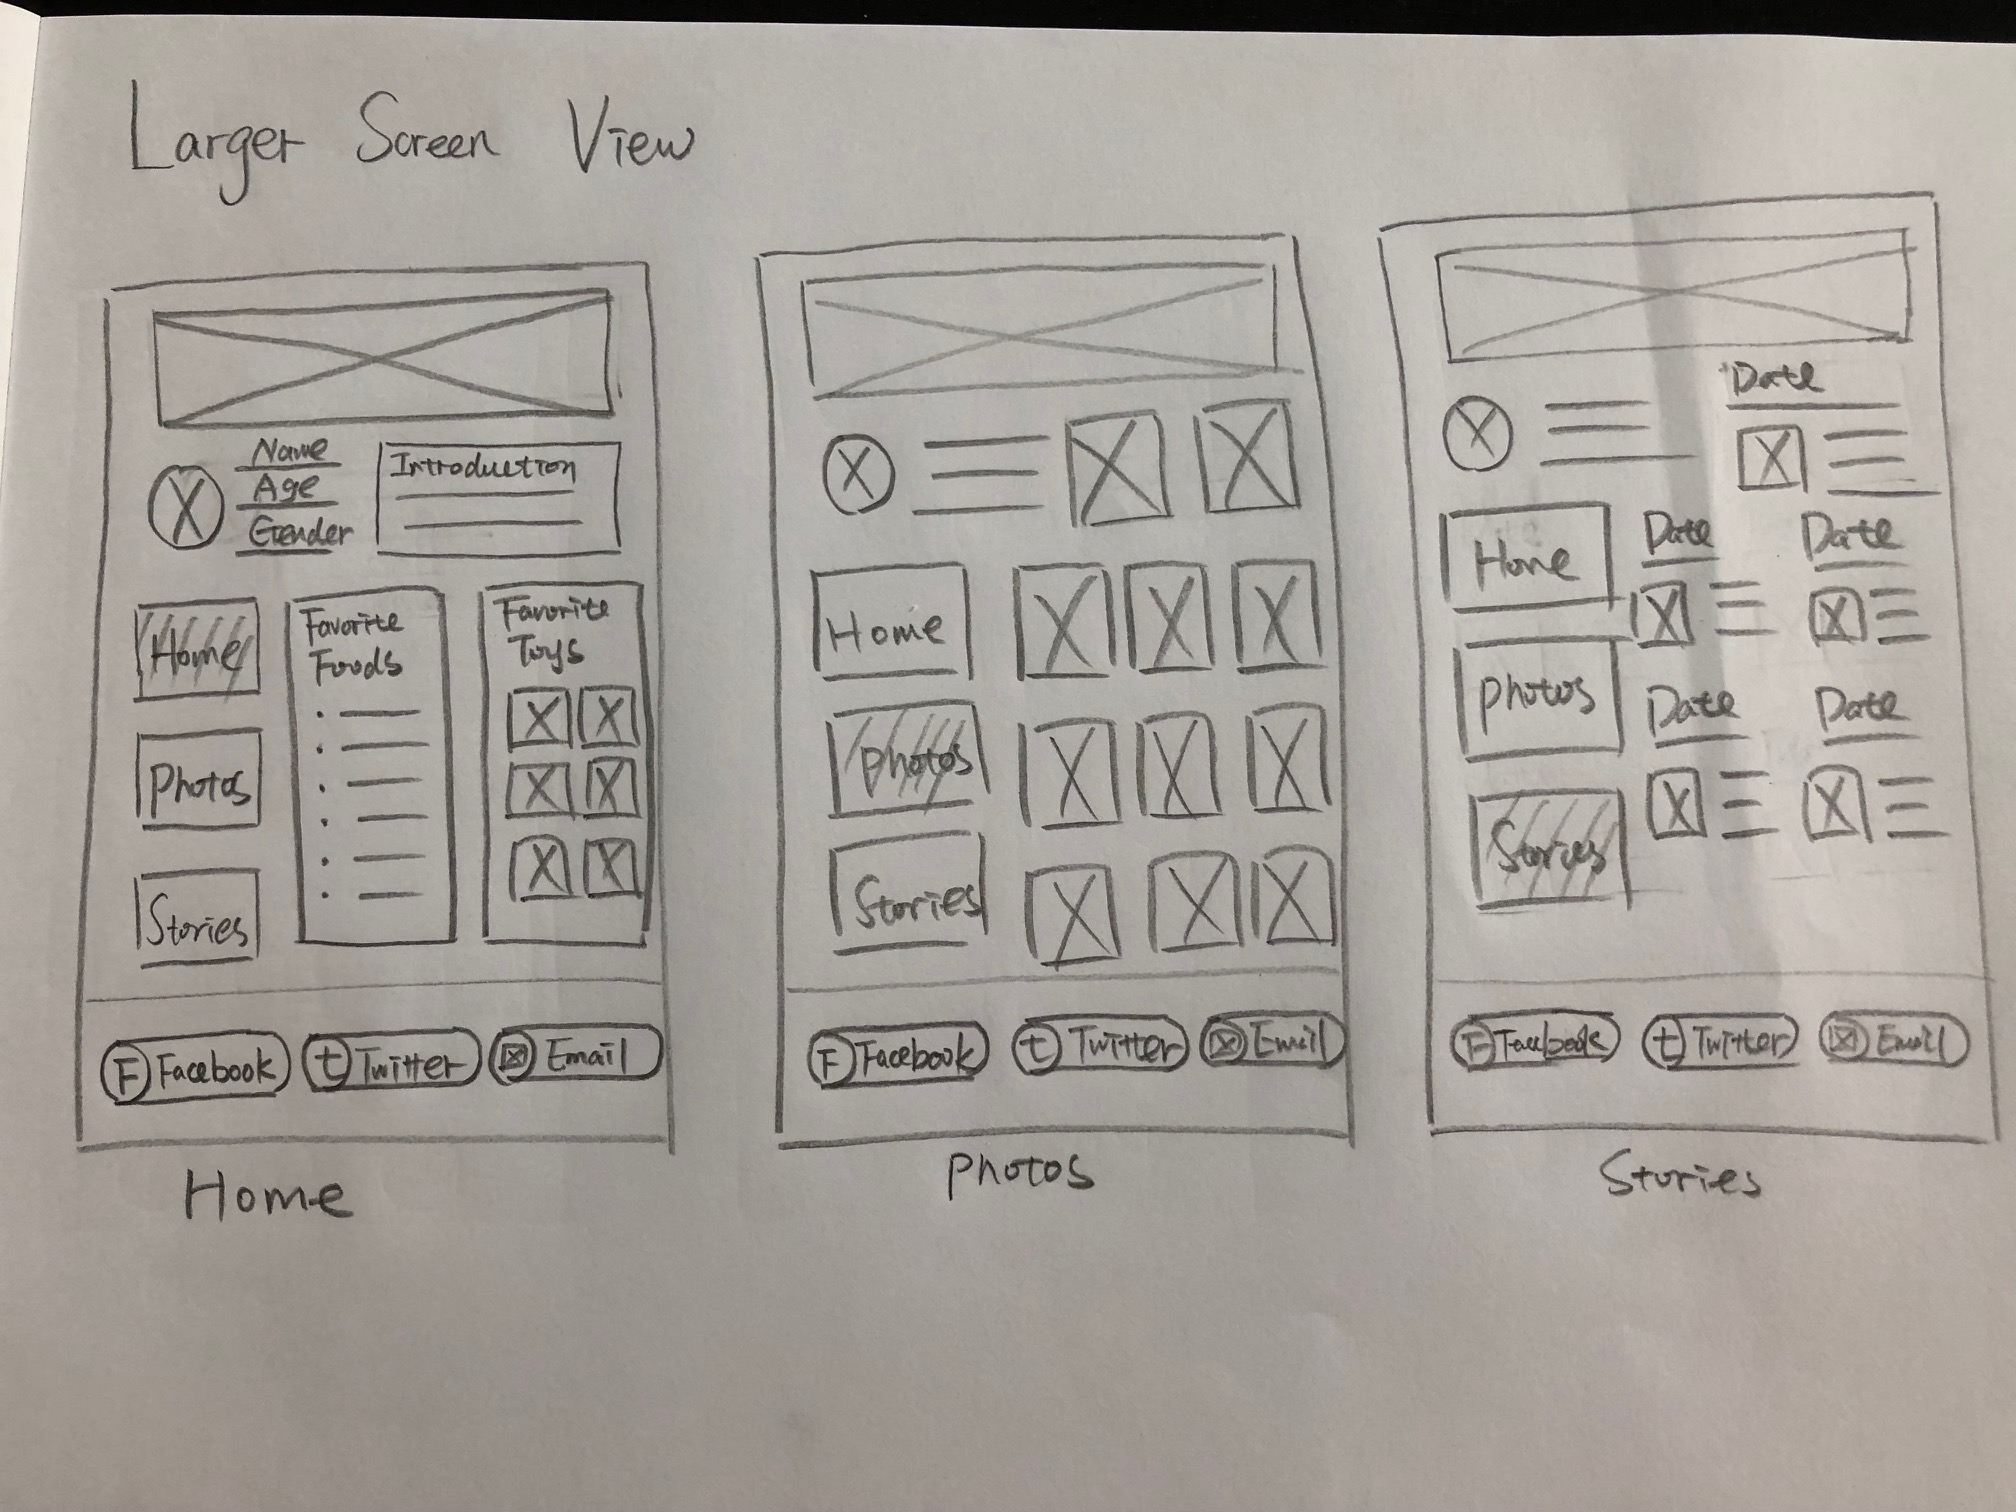 Larger Screen View
Name
Age
Gender
Introduction
Home
Photos
Stories
Favorite
Foods
Favorite
Toys
F Facebook
t Twitter
Email
Home
Home
Photos
Stories
F Facebook
t Twitter
Email
Photos
Date
Home
Photos
Stories
Date
Date
Date
Date
F Facebook
t Twitter
Email
Stories